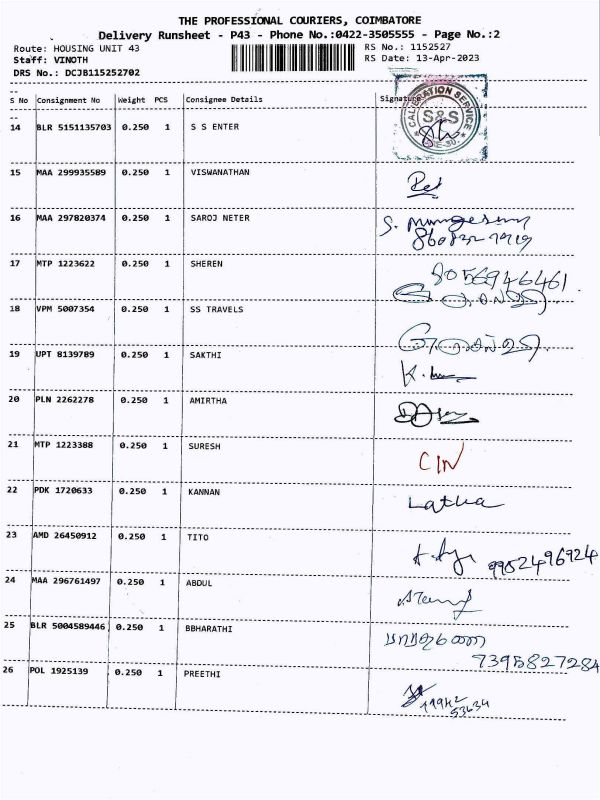 THE PROFESSIONAL COURIERS, COIMBATORE
Delivery Runsheet - P43 - Phone No.:0422-3505555 - Page No.:2
Route: HOUSING UNIT 43 RS No.: 1152527
Staff: VINOTH RS Date: 13-Apr-2023
DRS No.: DCJB115252702
--
S No Consignment No Weight PCS Consignee Details Signature
--
CALIBRATION SERVICE
S&S
14 BLR 5151135703 0.250 1 S S ENTER
15 MAA 299935589 0.250 1 VISWANATHAN
16 MAA 297820374 0.250 1 SAROJ NETER
S. Murugesan
17 MTP 1223622 0.250 1 SHEREN 8056946461
18 VPM 5007354 0.250 1 SS TRAVELS
19 UPT 8139789 0.250 1 SAKTHI
20 PLN 2262278 0.250 1 AMIRTHA
21 MTP 1223388 0.250 1 SURESH CIN
22 PDK 1720633 0.250 1 KANNAN Latha
23 AMD 26450912 0.250 1 TITO 9952496924
24 MAA 296761497 0.250 1 ABDUL
25 BLR 5004589446 0.250 1 BBHARATHI
7395827284
26 POL 1925139 0.250 1 PREETHI
53634